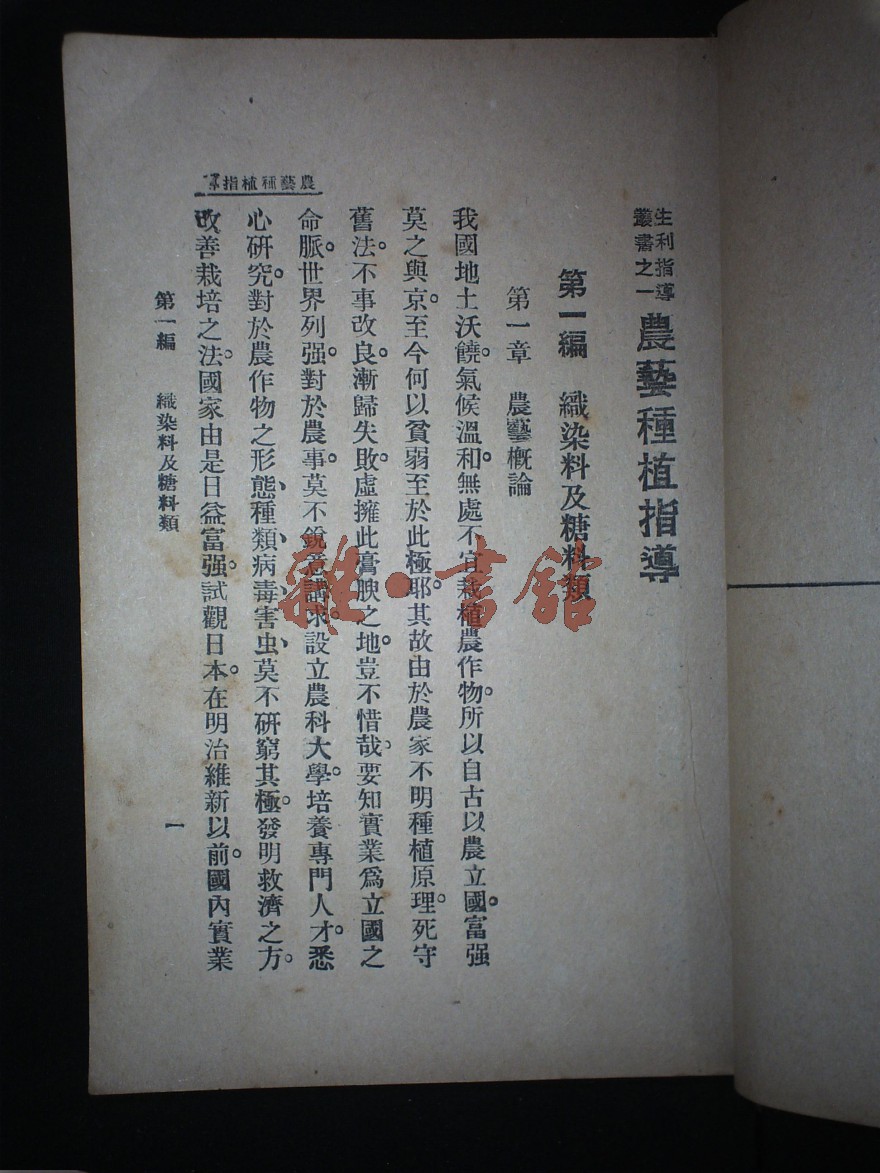 生利指導
叢書之一
農藝種植指導
第一編 織染料及糖料類
第一章 農藝概論
我國地土沃饒。氣候溫和。無處不宜栽植農作物。所以自古以農立國。富强
莫之與京。至今何以貧弱至於此極耶。其故由於農家不明種植原理。死守
舊法。不事改良。漸歸失敗。虛擁此膏腴之地。豈不惜哉。要知實業爲立國之
命脈。世界列强。對於農事。莫不銳意講求。設立農科大學。培養專門人才。悉
心研究。對於農作物之形態、種類、病毒、害虫、莫不研窮其極。發明救濟之方。
改善栽培之法。國家由是日益富强。試觀日本。在明治維新以前。國內實業
農藝種植指導
第一編 織染料及糖料類
一
雜·書館